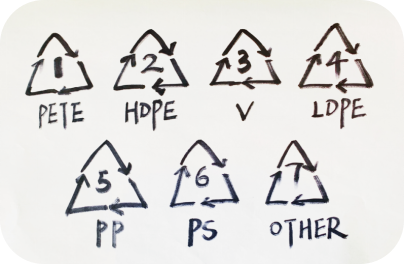 1 2 3 4
PETE HDPE V LDPE
5 6 7
PP PS OTHER